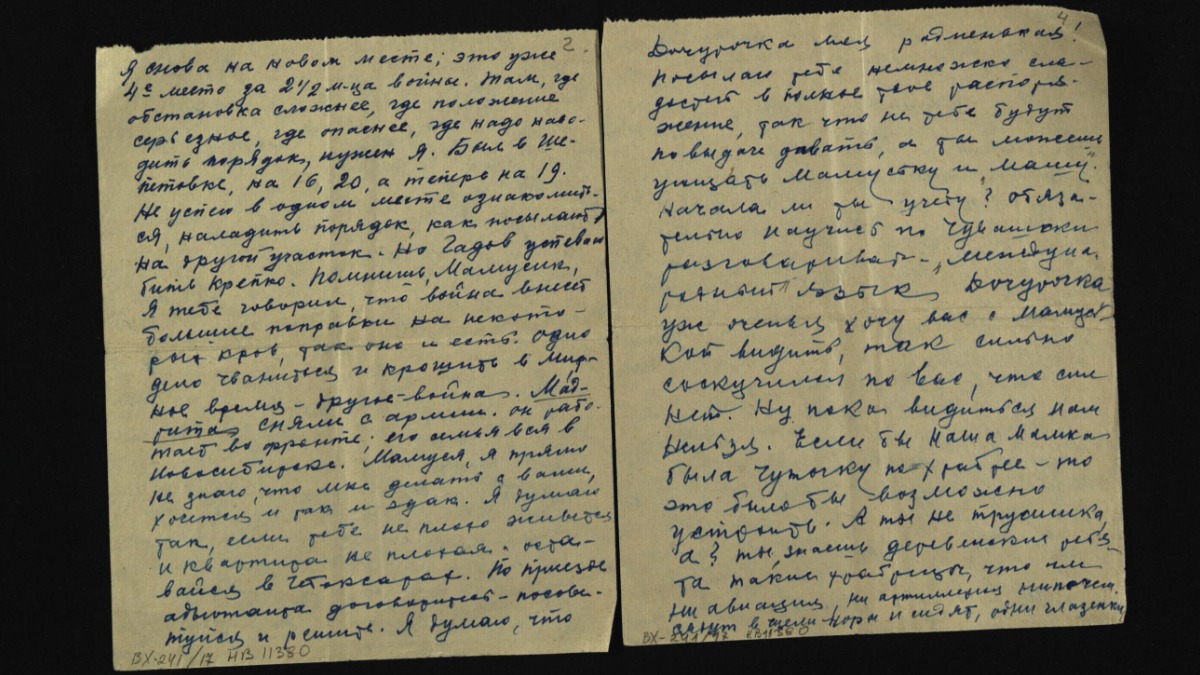 2.
Я снова на новом месте; это уже
4е место за 2½ м-ца войны. Там, где
обстановка сложнее, где положение
серьезное, где опаснее, где надо наво-
дить порядок, нужен я. Был в Ше-
петовке, на 16, 20, а теперь на 19.
Не успел в одном месте ознакомить-
ся, наладить порядок, как посылают
на другой участок. Но Гадов успеваю
бить крепко. Помнишь, Мамусик,
Я тебе говорил, что война внесет
большие поправки на некото-
рых, так оно и есть. Одно
дело чваниться и крошить в мир-
ное время – другое – война.
сняли с армии. он рабо-
тает во фронте; его семья вся в
Новосибирске. Мамуся, я прямо
не знаю что мне делать с вами,
хочется и так и эдак. Я думаю
так, если тебе не плохо живется
и квартира не плохая. оста-
вайся в Чебоксарах. По приезде
адъютанта договоритесь – посове-
туйся и решите. Я думаю, что
ВХ-241/17 НВ 11380
4
Дочурочка моя родненькая!
Посылаю тебе немножко сла-
достей в полное твое распоря-
жение, так что не тебе будут
по выдаче давать, а ты можешь
угощать Мамустку и „Машу“.
Начала ли ты учебу? обяза-
тельно научись по Чувашски
разговаривать – „междуна-
родный“ язык Дочурочка
уж очень я хочу вас с Мамуст-
кой видеть, так сильно
соскучился по вас, что сил
нет. Ну пока видиться нам
нельзя. Если бы наша Мамка
была чуточку по-храбрее – то
это было бы возможно
устроить. А ты не трусишка,
а? ты знаешь деревенские ребя-
та такие храбрецы, что им
ни авиация, ни артиллерия нипочем.
в щели норы и сидят, одни глазенки
ВХ-241/17 НВ 11380